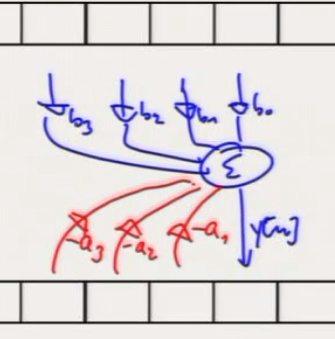 b₃ b₂ b₁ b₀
Σ
-a₃ -a₂ -a₁ y[n]